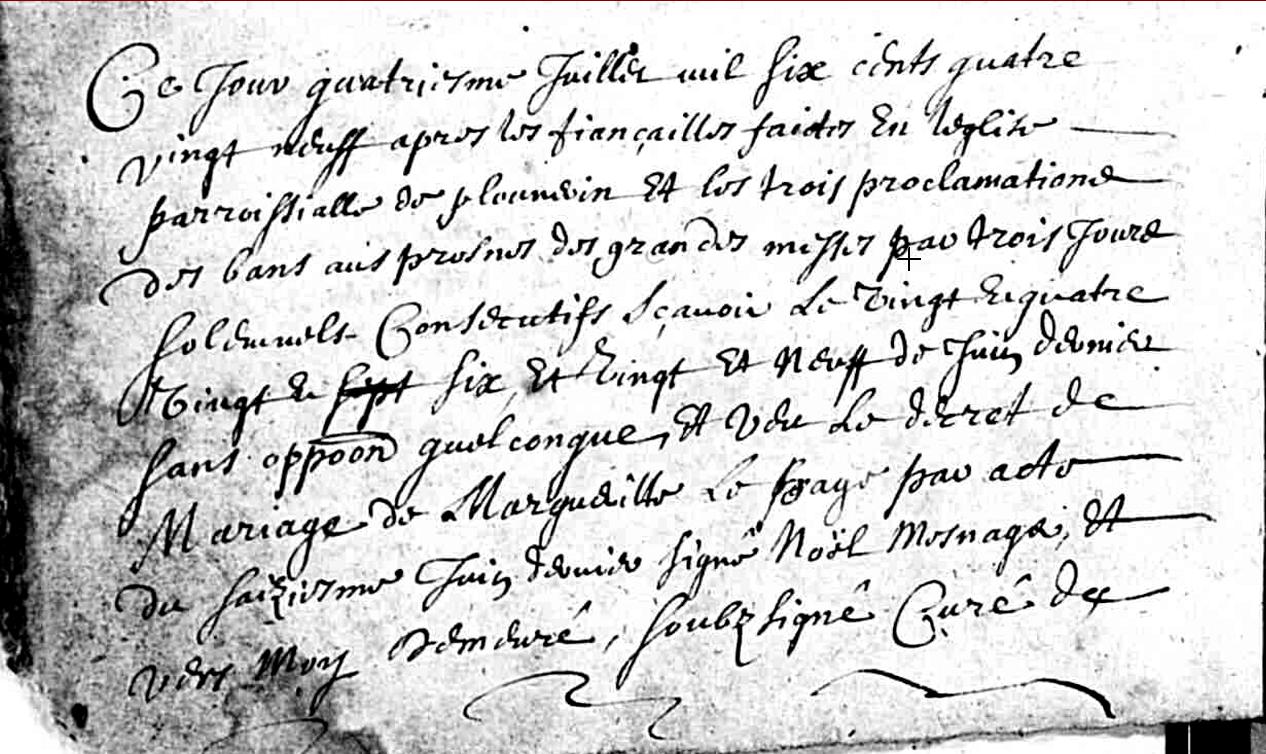 Ce Jour quatriesme Juillet mil six cents quatre
vingt neuff apres les fiançailles faictes En leglise
parroissialle de plounevin Et les trois proclamations
des bans aus prosnes des grandes messes par trois Jours
solemnels Consecutifs sçavoir Le vingt & quatre
vingt & sept six, Et vingt Et Neuff de Juin dernier
sans oppoon quelconque, Et veu Le decret de
Mariage de Margueritte Le page par acte
du saiziesme Juin dernier signé Noël Mesnage, Et
vers Moy demeuré, soubzsigné Curé de